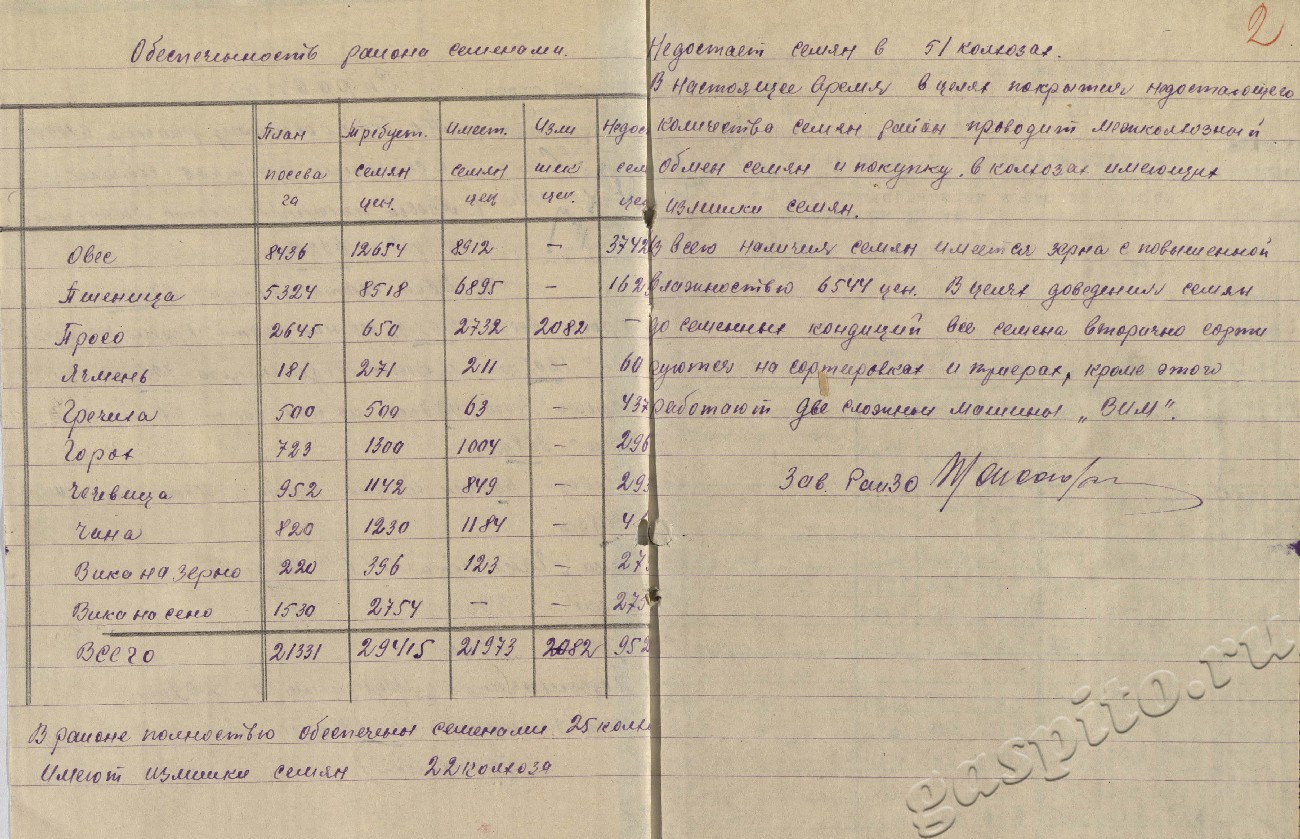 2
Обеспеченность района семенами.
План посева га | Требует. семян цен. | Имеет. семян цен | Изли шек цен. | Недос сем це
Овес 8436 12654 8912 — 3742
Пшеница 5324 8518 6895 — 162
Просо 2645 650 2732 2082 —
Ячмень 181 271 211 — 60
Гречиха 500 500 63 — 437
Горох 723 1300 1004 — 296
Чечевица 952 1142 849 — 29
Чина 820 1230 1184 — 4
Вика на зерно 220 396 123 — 27
Вика на сено 1530 2754 — — 275
Всего 21331 29415 21973 2082 952
В районе полностью обеспечены семенами 25 колх
Имеют излишки семян 22 колхоза
Недостает семян в 51 колхозах.
В настоящее время в целях покрытия недостающего
количества семян район проводит межколхозный
обмен семян и покупку, в колхозах имеющих
излишки семян.
Из всего наличия семян имеется зерна с повышенной
влажностью 6544 цен. В целях доведения семян
до семенных кондиций все семена вторично сорти
руются на сортировках и триерах, кроме этого
работают две сложных машины „ВИМ".
Зав. Райзо
gaspito.ru